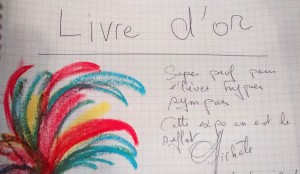 Livre d'or
Super prof pour
élèves hyper
sympas
Cette expo en est le
reflet
Michèle